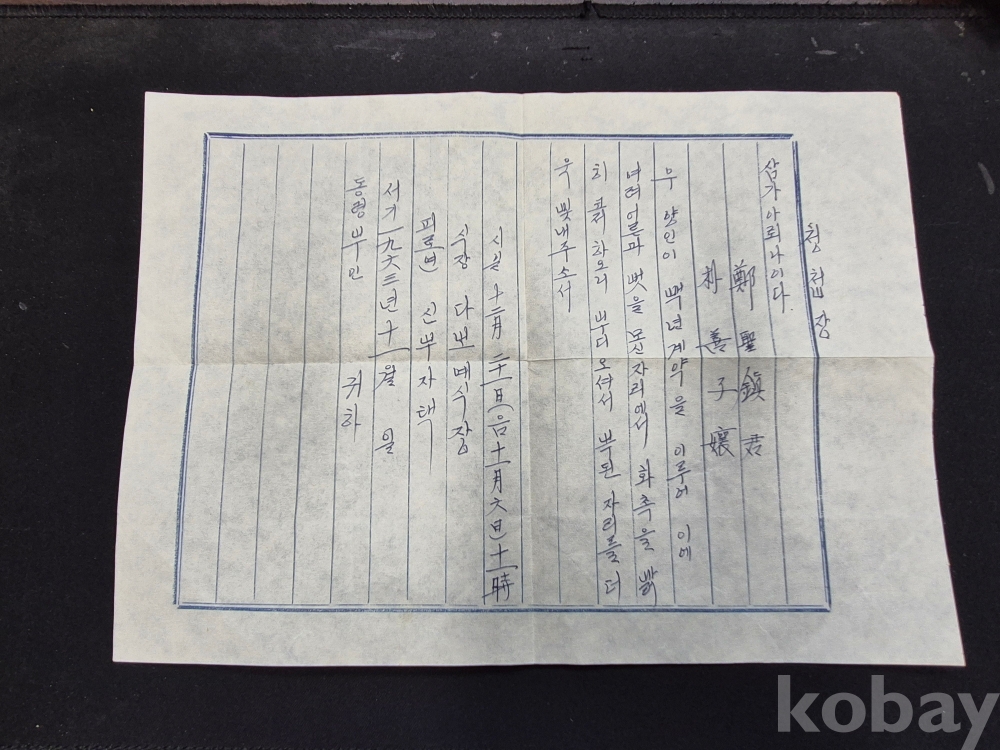 청첩장
삼가아뢰나이다.
鄭聖鎭君
朴善子孃
우 양인이 백년계약을 이루어 이에
여러 얼과 벗을 모신자리에서 화촉을 밝
히 하오니 부디오셔서 뿌된 자리를 더
욱 빛내주소서
시일 十二月 二十一日(음十一月六日)十一時
식장 다보예식장
피로연 신부자택
서기一九六三년 十一월 일
동령부인
귀하
kobay